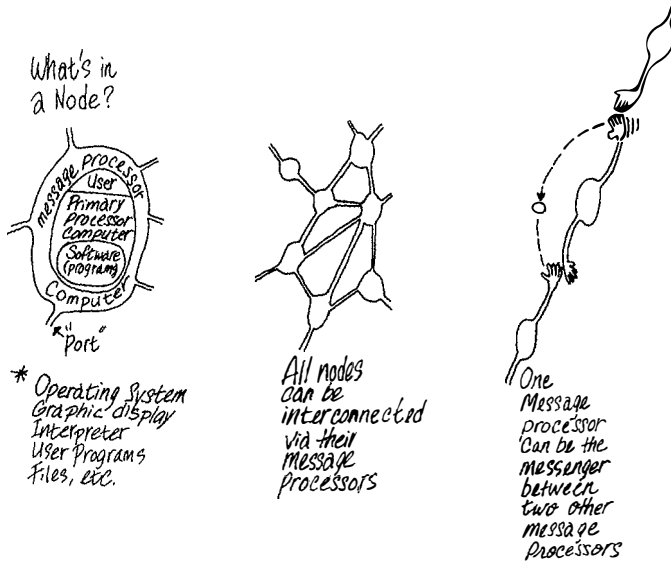 What's in
a Node?
message processor
User
Primary
Processor
Computer
Software
(programs)
Computer
"Port"
* Operating System
Graphic display
Interpreter
User Programs
Files, etc.
All nodes
can be
interconnected
via their
message
processors
One
Message
processor
can be the
messenger
between
two other
message
Processors